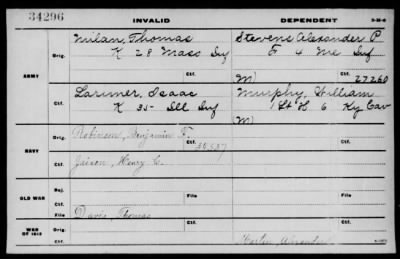 34296
INVALID
DEPENDENT
3-25-6
ARMY
Orig.
Milan, Thomas
K 28 Mass Inf
Stevens Alexander P
F 4 Me Inf
M)
Ctf.
27260
Ctf.
Larimer, Isaac
K 35 Ill Inf
Murphy, William
1 Lt H 6 Ky Cav
M)
NAVY
Orig.
Robinson, Benjamin F.
Ctf.
Henry C.
OLD WAR
Rej.
Ctf.
File
File
WAR OF 1812
Orig.
Davis Thomas
Ctf.